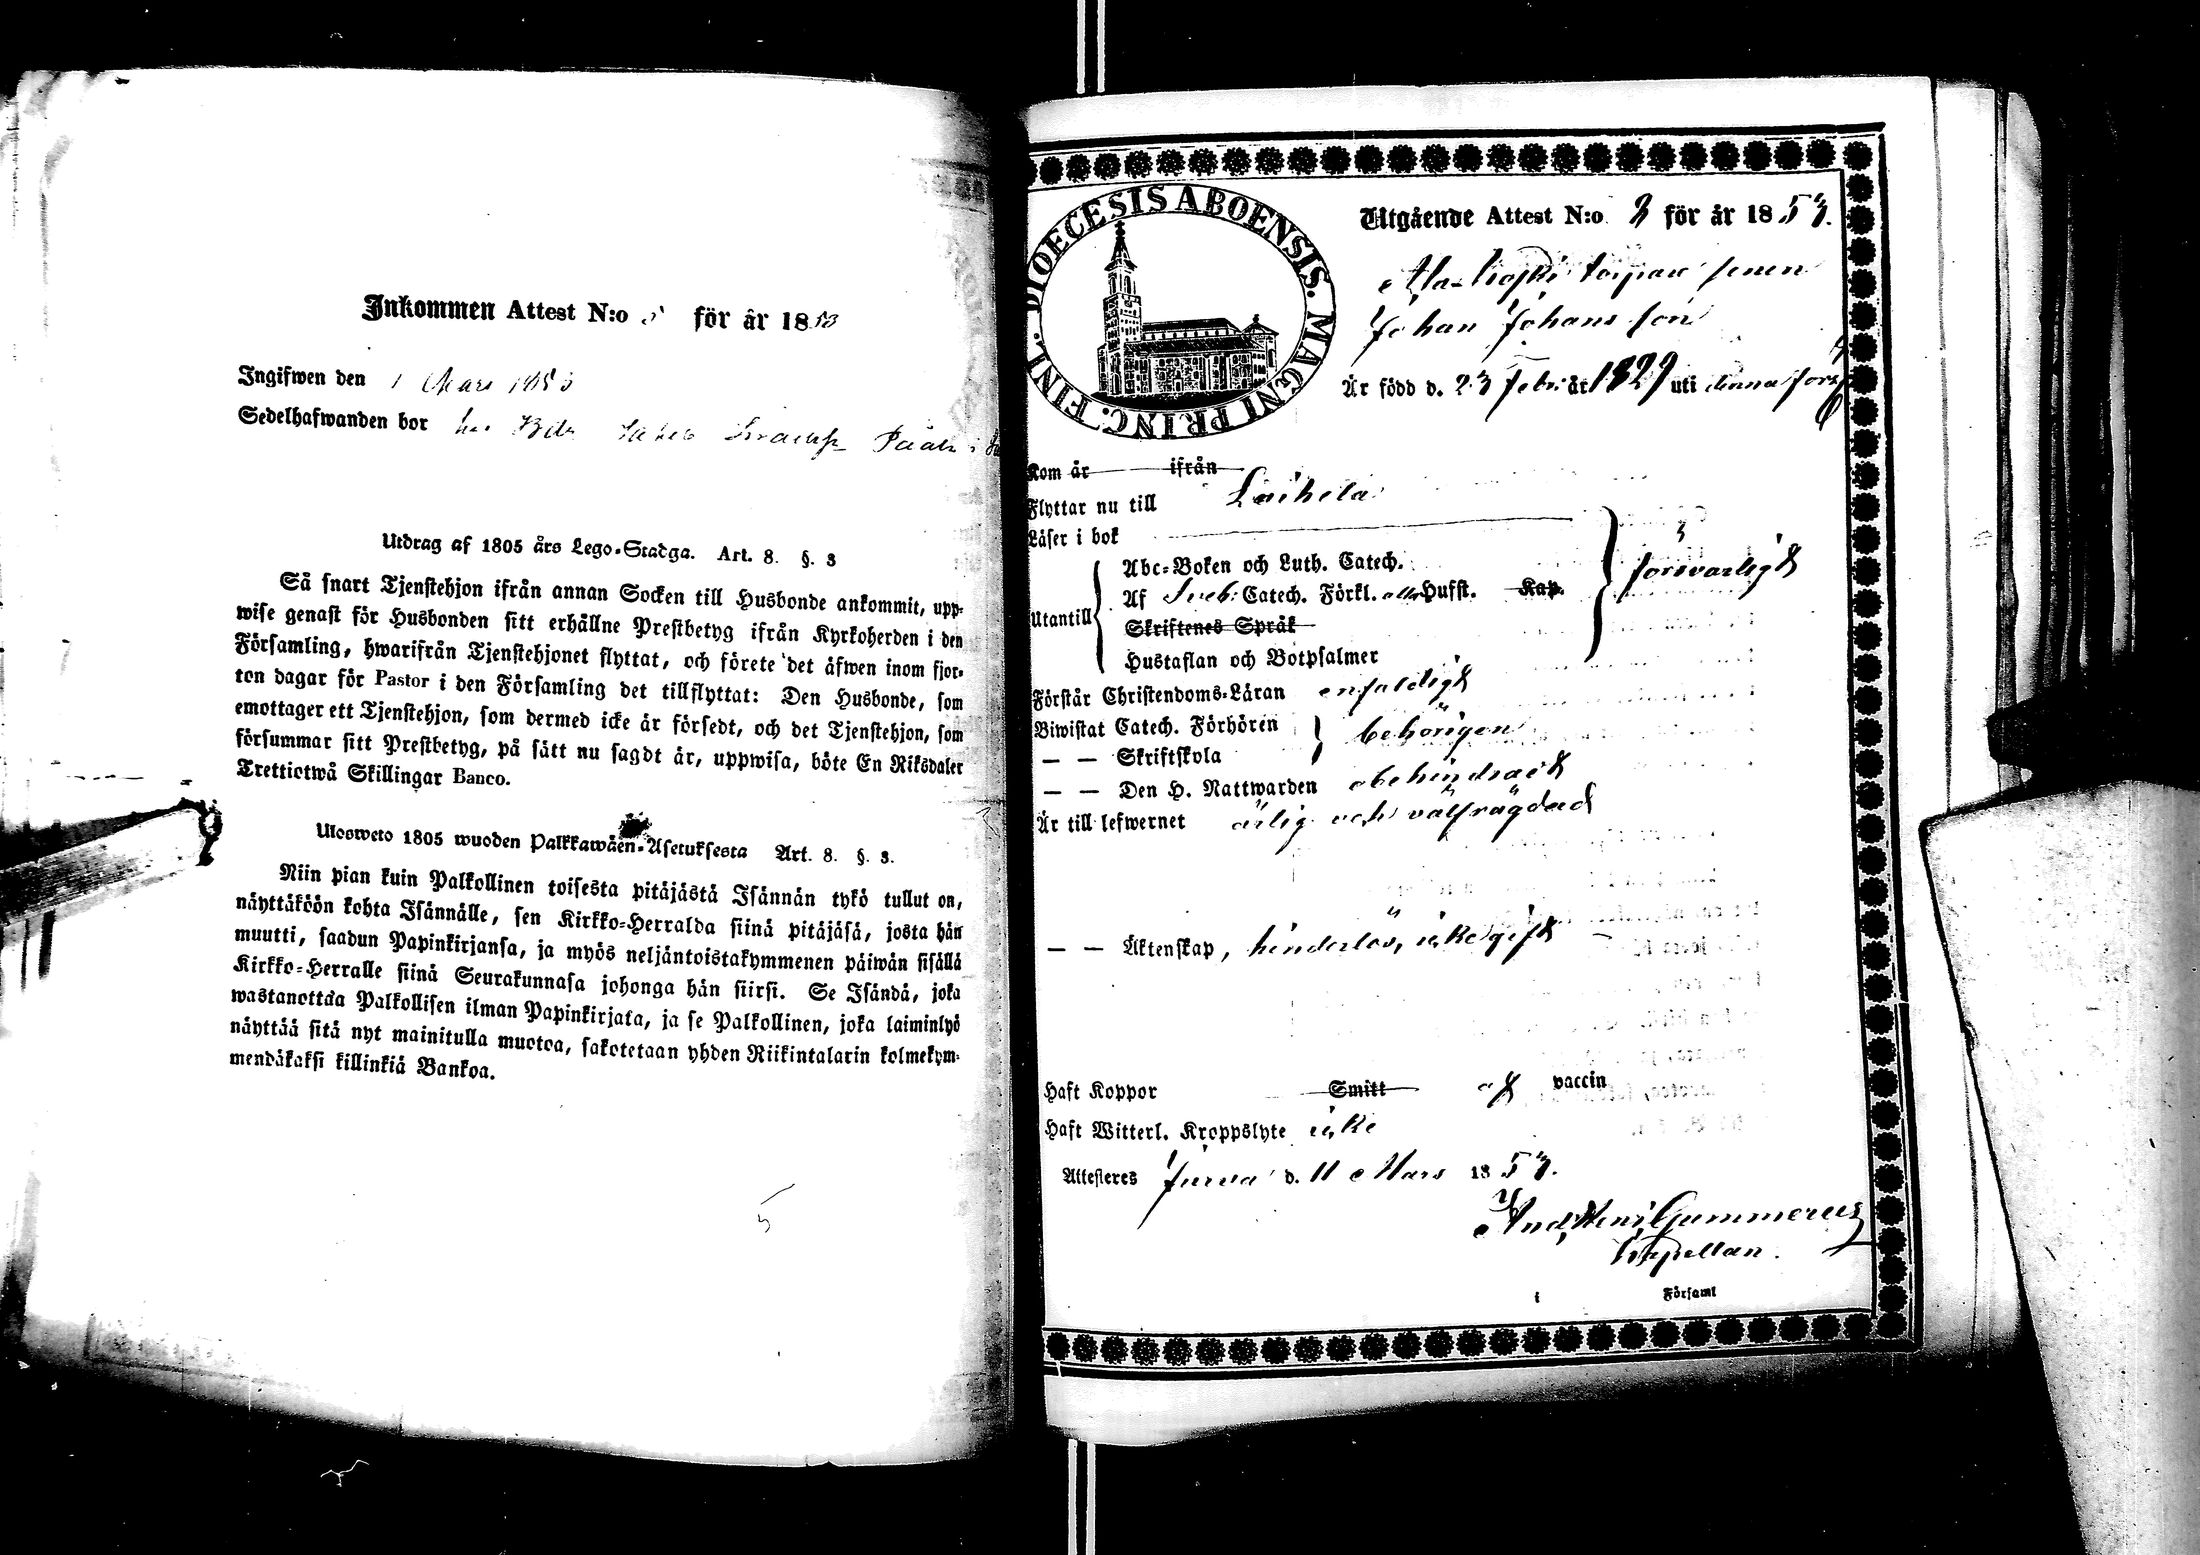 Inkommen Attest N:o 5 för år 1853
Ingifwen den 1 Mars 1853
Sedelhafwanden bor hos
Utdrag af 1805 års Lego-Stadga. Art. 8. §. 3
Så snart Tjenstehjon ifrån annan Socken till Husbonde ankommit, upp-
wise genast för Husbonden sitt erhållne Prestbetyg ifrån Kyrkoherden i den
Församling, hwarifrån Tjenstehjonet flyttat, och förete det äfwen inom fjor-
ton dagar för Pastor i den Församling det tillflyttat: Den Husbonde, som
emottager ett Tjenstehjon, som dermed icke är försedt, och det Tjenstehjon, som
försummar sitt Prestbetyg, på sätt nu sagdt är, uppwisa, böte En Riksdaler
Trettiotwå Skillingar Banco.
Ulosweto 1805 wuoden Palkkawäen-Asetuksesta Art. 8. §. 3.
Niin pian kuin Palkollinen toisesta pitäjästä Isännän tykö tullut on,
näyttäköön kohta Isännälle, sen Kirkko-Herralda siinä pitäjäsä, josta hän
muutti, saadun Papinkirjansa, ja myös neljäntoistakymmenen päiwän sisällä
Kirkko-Herralle siinä Seurakunnasa johonga hän siirsi. Se Isändä, joka
wastanottaa Palkollisen ilman Papinkirjata, ja se Palkollinen, joka laiminlyö
näyttää sitä nyt mainitulla muotoa, sakotetaan yhden Riikintalarin kolmekym-
mendäkaksi killinkiä Bankoa.
5
DIOECESIS ABOENSIS. MAGNI PRINC. FINL.
Utgående Attest N:o 3 för år 1853.
torpare sonen
Johan Johans son
Är född d. 23 Febr: år 1829 uti denna förs:
Kom år ifrån
Flyttar nu till Laihela
Läser i bok
Utantill
Abc-Boken och Luth. Catech.
Af Sveb: Catech. Förkl. Hufst. Kap.
Skriftenes Språk
Hustaflan och Botpsalmer
försvarligt
Förstår Christendoms-Läran enfaldigt
Biwistat Catech. Förhören
— — Skriftskola
behörigen
— — Den H. Nattwarden obehindradt
Är till lefwernet ärlig och välfrägdad
— — Äktenskap, hinderlös, icke gift
Haft Koppor Smitt af vaccin
Haft Witterl. Kroppslyte icke
Attesteres Jurva d. 11 Mars 1853.
And. Henr. Gummerus
Kapellan.
i Församl